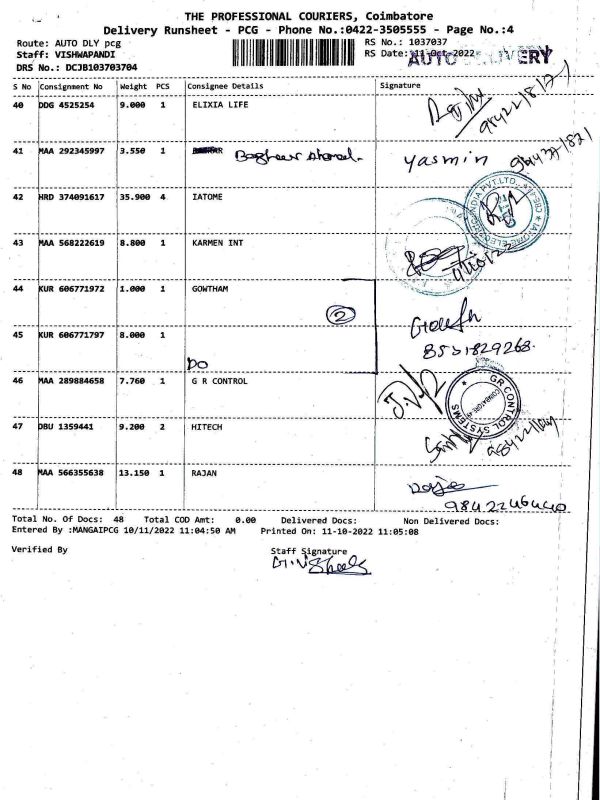 THE PROFESSIONAL COURIERS, Coimbatore
Delivery Runsheet - PCG - Phone No.:0422-3505555 - Page No.:4
Route: AUTO DLY pcg
Staff: VISHWAPANDI
DRS No.: DCJB103703704
RS No.: 1037037
RS Date: 11-Oct-2022
AUTO DELIVERY
S No Consignment No Weight PCS Consignee Details Signature
40 DDG 4525254 9.000 1 ELIXIA LIFE
41 MAA 292345997 3.550 1
yasmin
42 HRD 374091617 35.900 4 IATOME
43 MAA 568222619 8.800 1 KARMEN INT
44 KUR 606771972 1.000 1 GOWTHAM
2
45 KUR 606771797 8.000 1
DO
8531829268.
46 MAA 289884658 7.760 1 G R CONTROL
GR CONTROL SYSTEMS
47 DBU 1359441 9.200 2 HITECH
48 MAA 566355638 13.150 1 RAJAN
9842246440
Total No. Of Docs: 48 Total COD Amt: 0.00 Delivered Docs: Non Delivered Docs:
Entered By :MANGAIPCG 10/11/2022 11:04:50 AM Printed On: 11-10-2022 11:05:08
Verified By Staff Signature